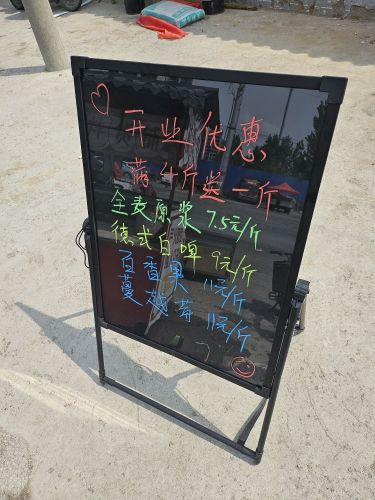 开业优惠
满4斤送一斤
全麦原浆 7.5元/斤
德式白啤 9元/斤
百香果 11元/斤
蔓越莓 11元/斤